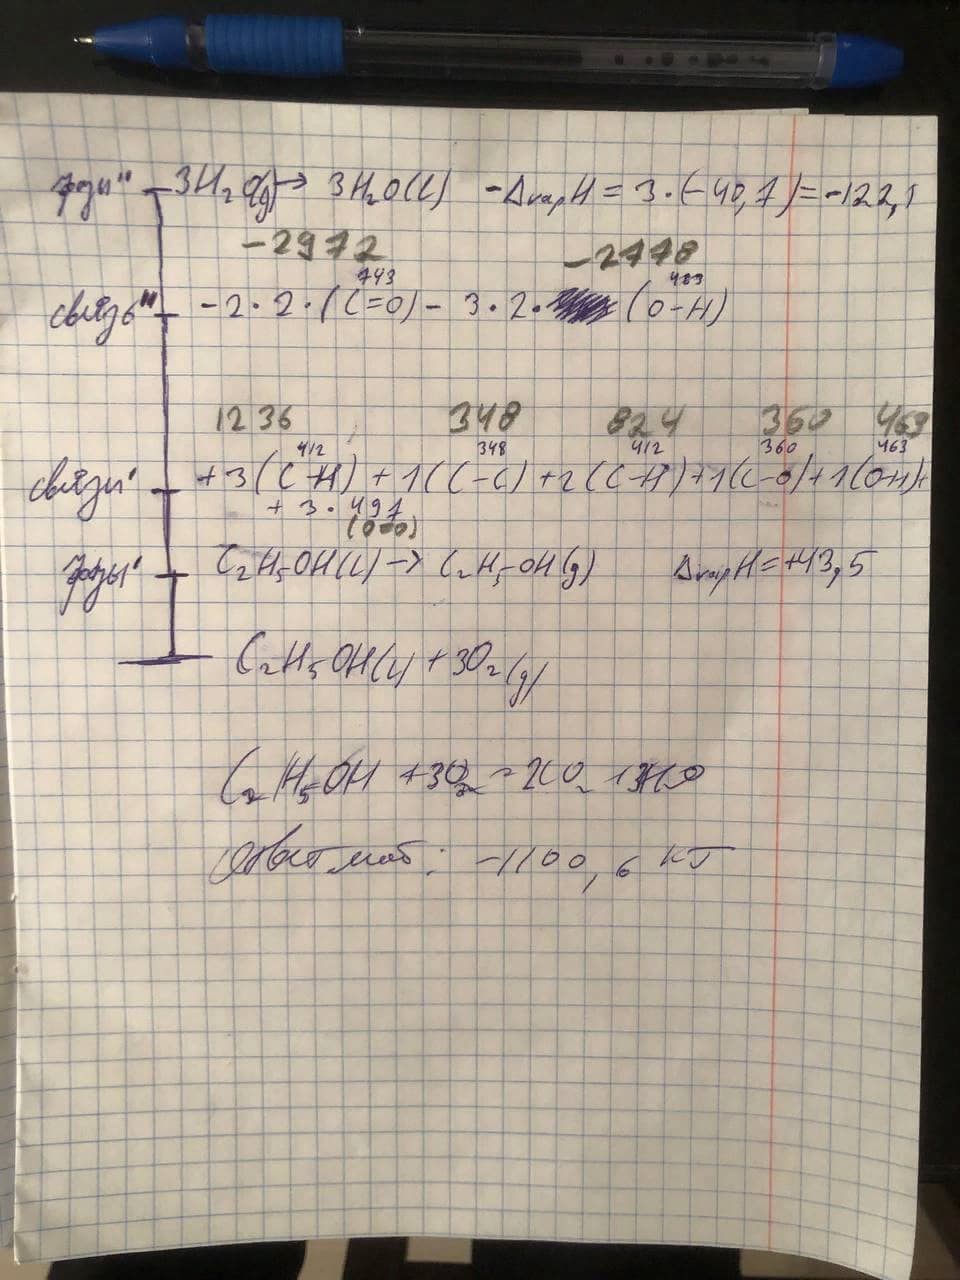 фазы" 3H₂O(g) → 3H₂O(l) -ΔvapH = 3·(-40,7)=-122,1
-2972 -2778
743 463
связь" -2·2·(C=O) - 3·2· (O-H)
1236 348 824 360 463
412 348 412 360 463
связи' +3(C-H) +1(C-C) +2(C-H)+1(C-O)+1(O-H)+
+ 3·497
(O=O)
фазы' C₂H₅OH(l) → C₂H₅OH(g) ΔvapH=+43,5
C₂H₅OH(l) +3O₂(g)
C₂H₅OH +3O₂ = 2CO₂ +3H₂O
Ответ : -1100,6 кJ